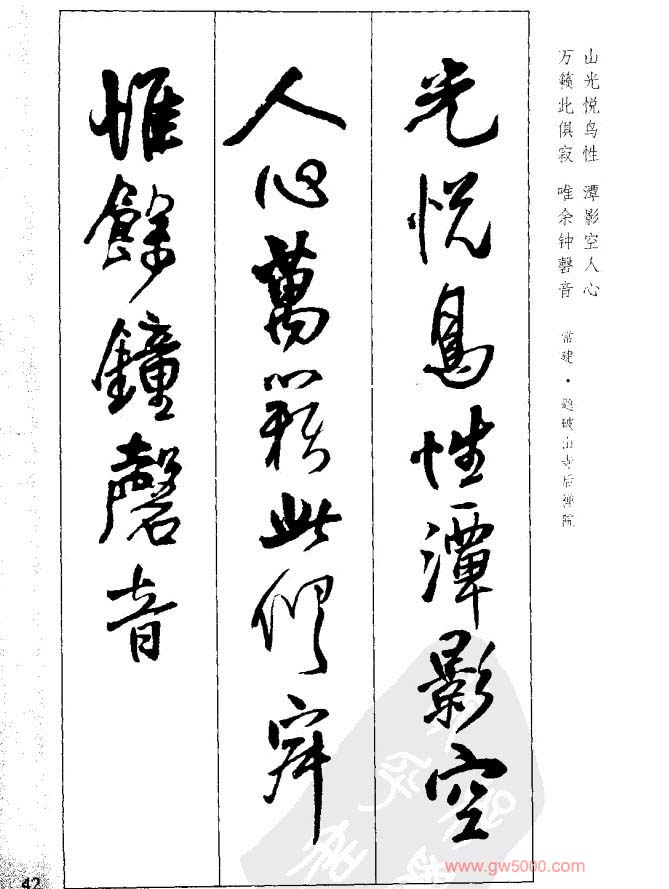 山光悦鸟性 潭影空人心
万籁此俱寂 唯余钟磬音
常建·题破山寺后禅院
光悦鳥性潭影空
人心萬籟此俱寂
惟餘鐘磬音
42
www.gw5000.com